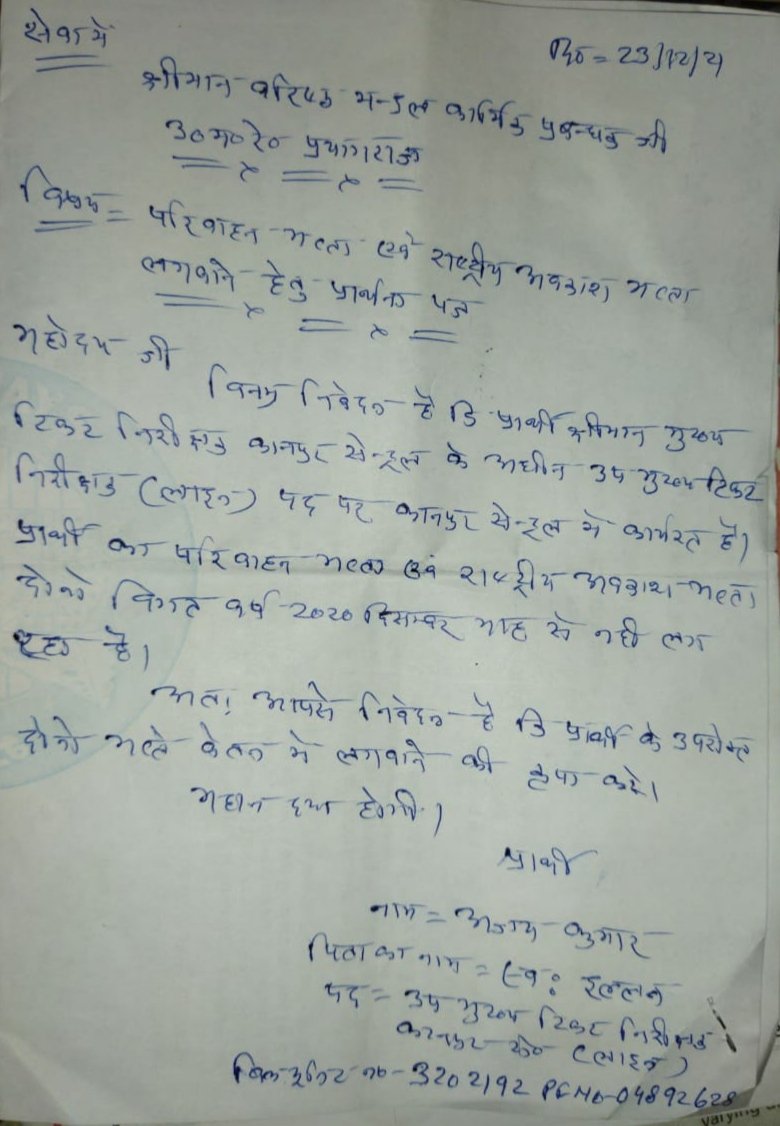 सेवा में
दि० = 23/12/21
श्रीमान वरिष्ठ मन्डल कार्मिक प्रबन्धक जी
उ०म०रे० प्रयागराज
विषय = परिवाहन भत्ता एवं राष्ट्रीय अवकाश भत्ता
लगवाने हेतु प्रार्थना पत्र
महोदय जी
विनम्र निवेदन है कि प्रार्थी श्रीमान मुख्य
टिकट निरीक्षक कानपुर सेन्ट्रल के अधीन उप मुख्य टिकट
निरीक्षक (लाइन) पद पर कानपुर सेन्ट्रल में कार्यरत है।
प्रार्थी का परिवाहन भत्ता एवं राष्ट्रीय अवकाश भत्ता
दोनो विगत वर्ष 2020 दिसम्बर माह से नही लग
रहा है।
अतः आपसे निवेदन है कि प्रार्थी के उपरोक्त
दोनो भत्ते वेतन में लगवाने की कृपा करे।
महान दया होगी।
प्रार्थी
नाम = अजय कुमार
पिता का नाम = स्व:
पद = उप मुख्य टिकट निरीक्षक
कानपुर से० (लाइन)
बिल यूनिट न०-3202192 PF No-04892628
varying